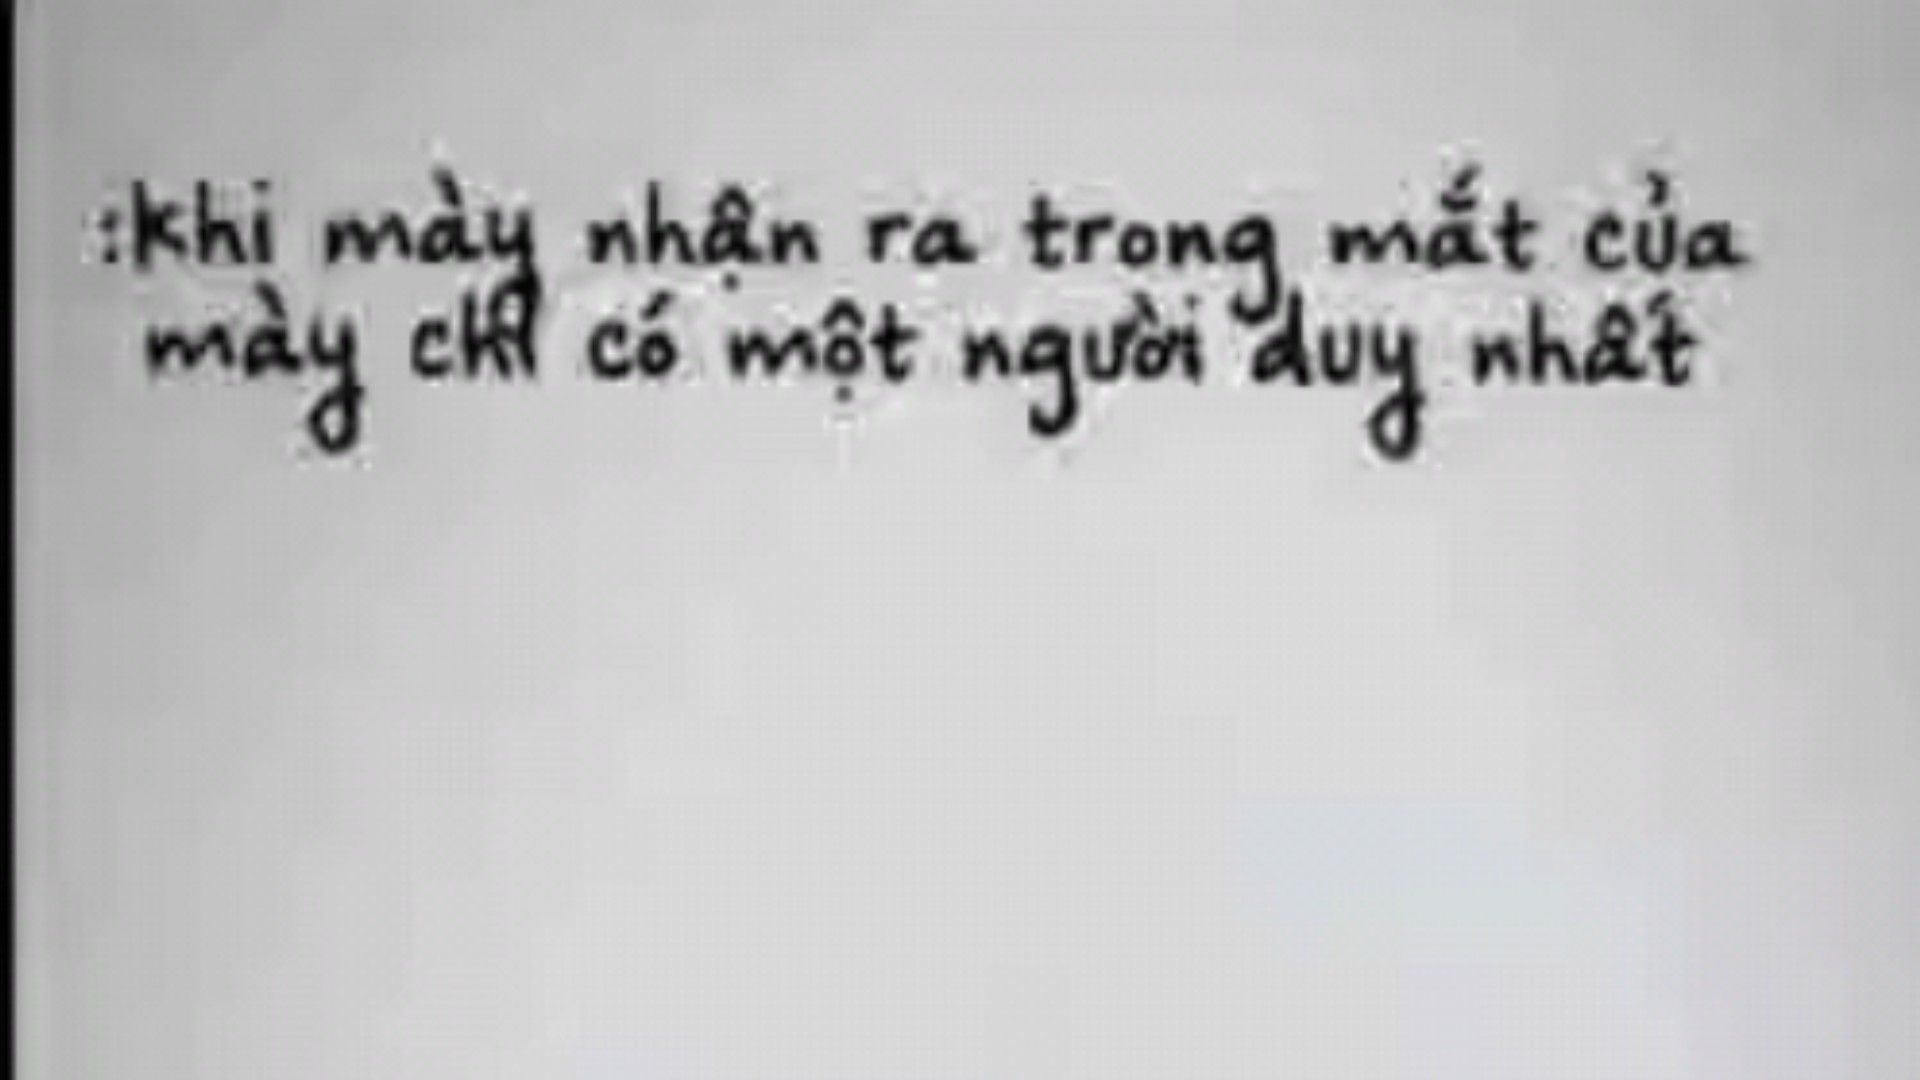 :khi mày nhận ra trong mắt của
mày chỉ có một người duy nhất